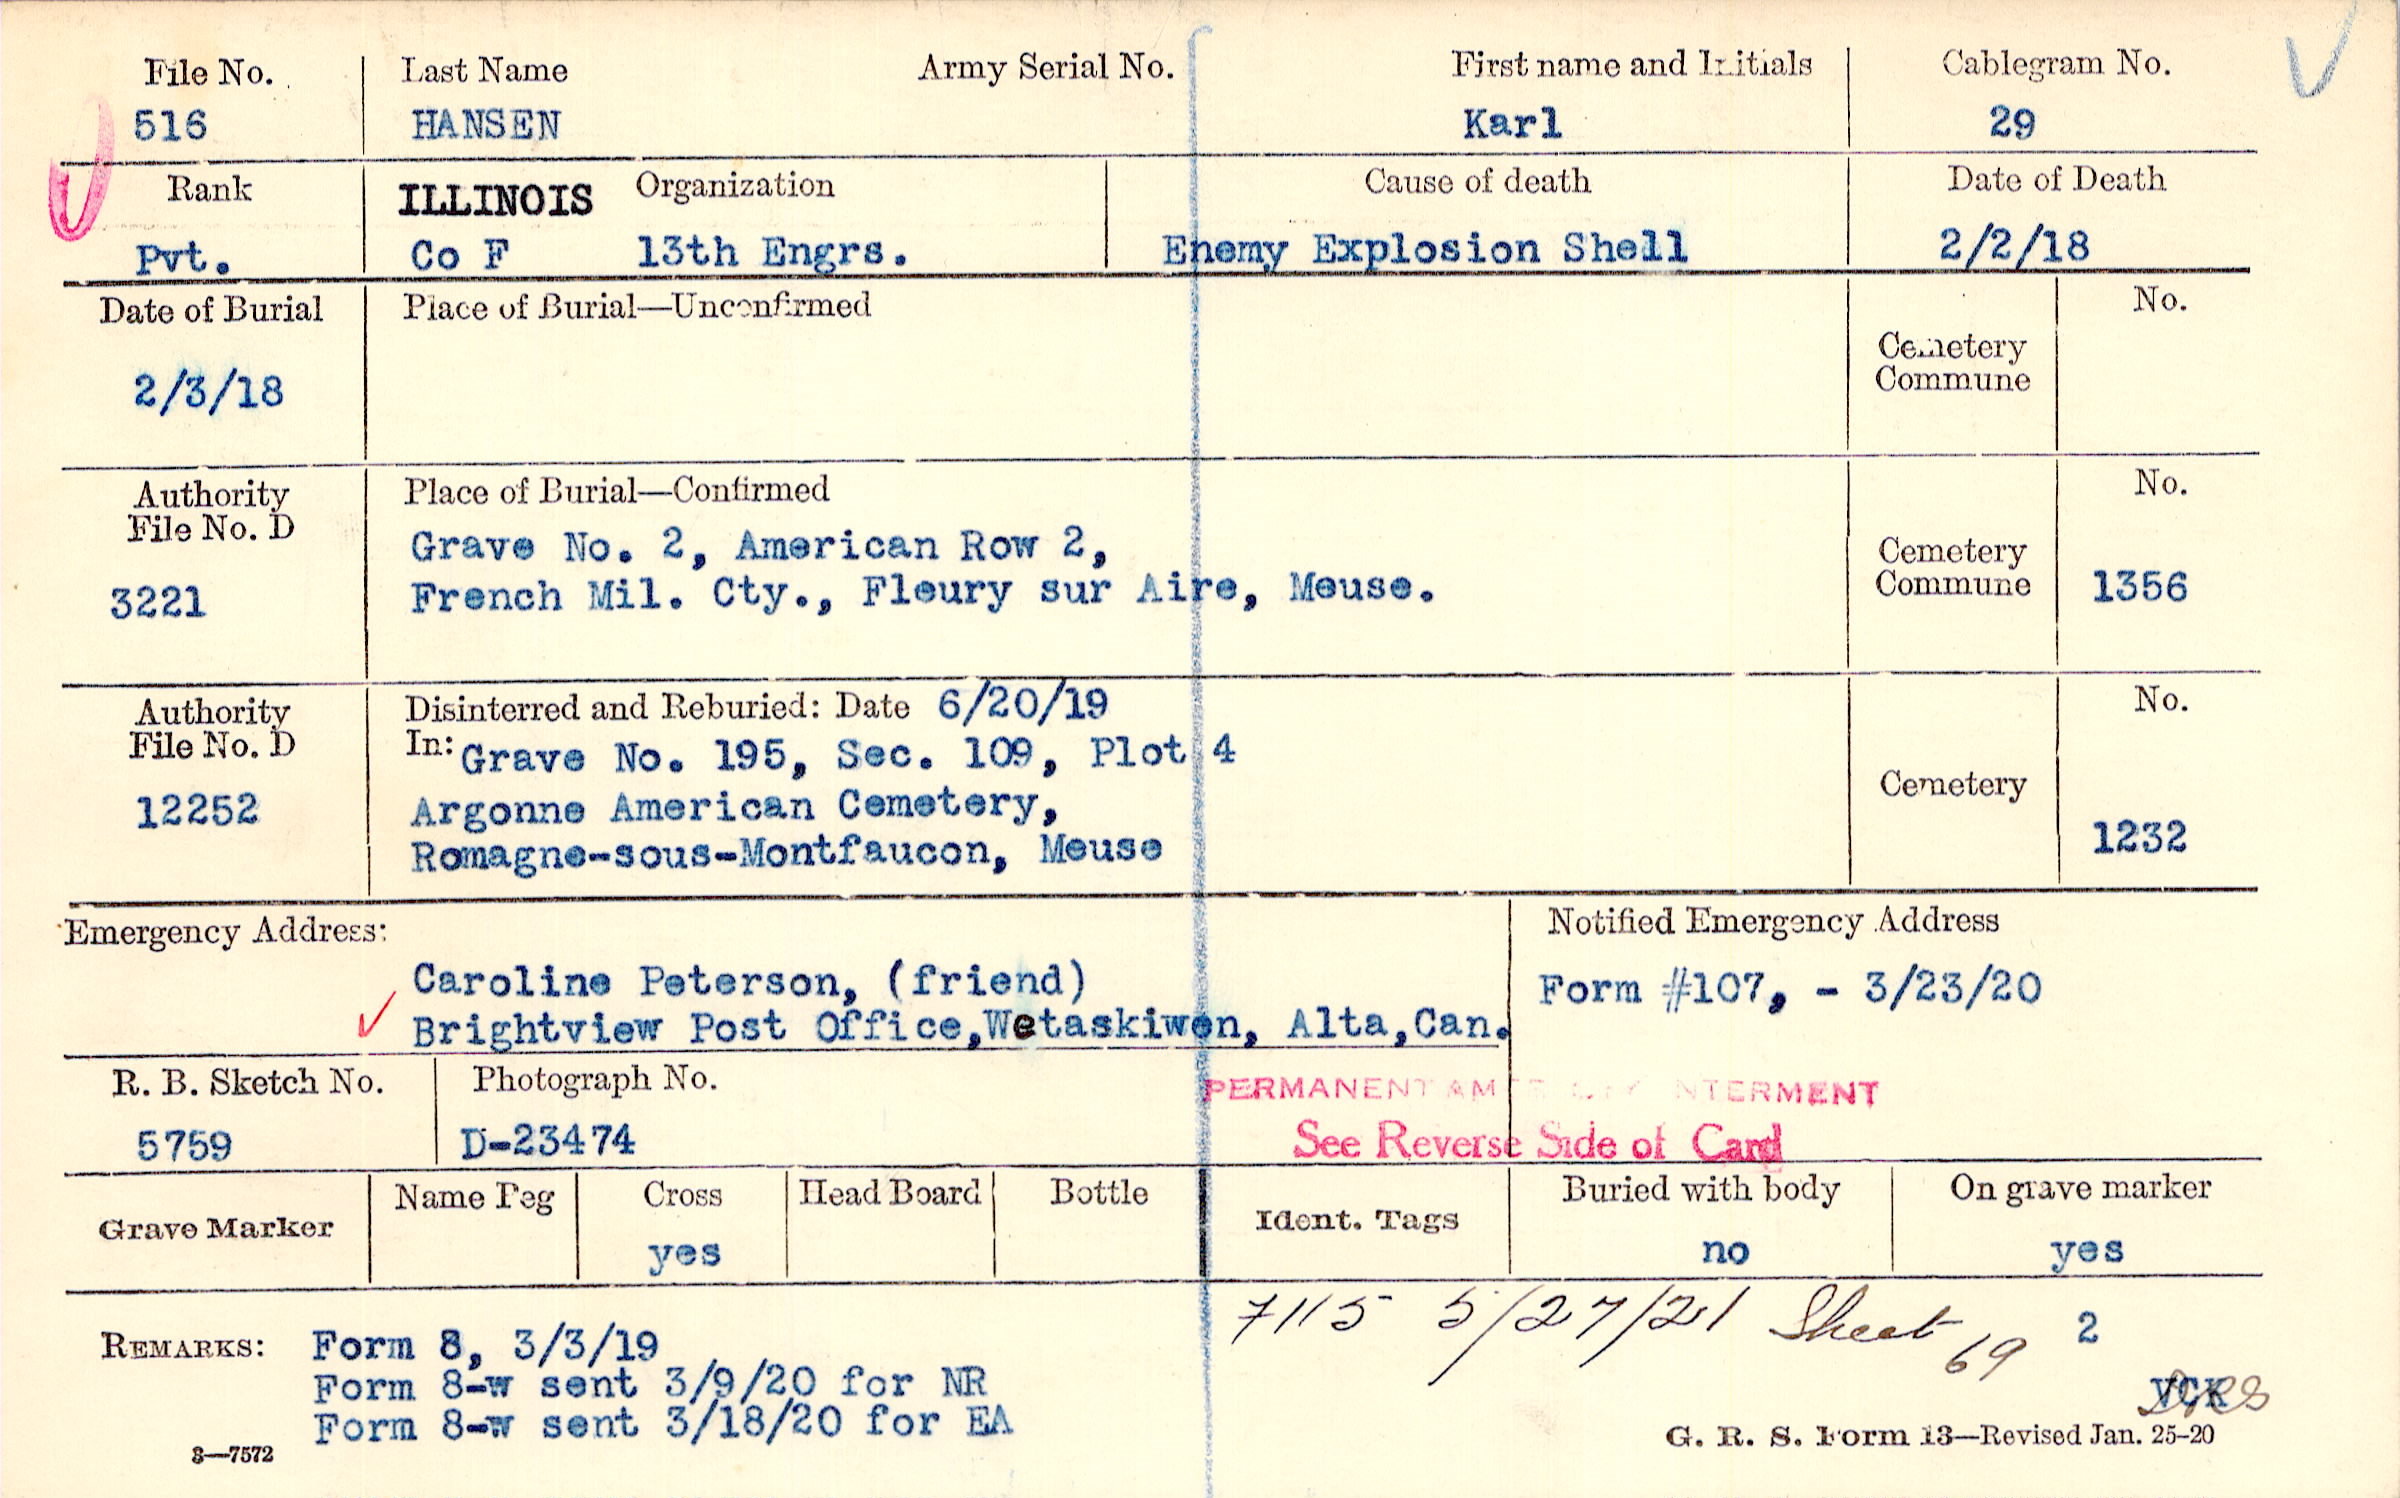 File No. Last Name Army Serial No. First name and Initials Cablegram No.
516 HANSEN Karl 29
Rank ILLINOIS Organization Cause of death Date of Death
Pvt. Co F 13th Engrs. Enemy Explosion Shell 2/2/18
Date of Burial Place of Burial—Unconfirmed No.
Cemetery
Commune
2/3/18
Authority Place of Burial—Confirmed No.
File No. D
Grave No. 2, American Row 2,
Cemetery
3221 French Mil. Cty., Fleury sur Aire, Meuse. Commune 1356
Authority Disinterred and Reburied: Date 6/20/19 No.
File No. D In: Grave No. 195, Sec. 109, Plot 4
Cemetery
12252 Argonne American Cemetery,
Romagne-sous-Montfaucon, Meuse 1232
Emergency Address: Notified Emergency Address
Caroline Peterson, (friend) Form #107, - 3/23/20
Brightview Post Office,Wetaskiwen, Alta,Can.
R. B. Sketch No. Photograph No. PERMANENT INTERMENT
5759 D-23474 See Reverse Side of Card
Grave Marker Name Peg Cross Head Board Bottle Ident. Tags Buried with body On grave marker
yes no yes
7115 5/27/21 Sheet 69 2
REMARKS: Form 8, 3/3/19
Form 8-w sent 3/9/20 for NR
VCK
Form 8-w sent 3/18/20 for EA
3—7572 G. R. S. Form 13—Revised Jan. 25-20